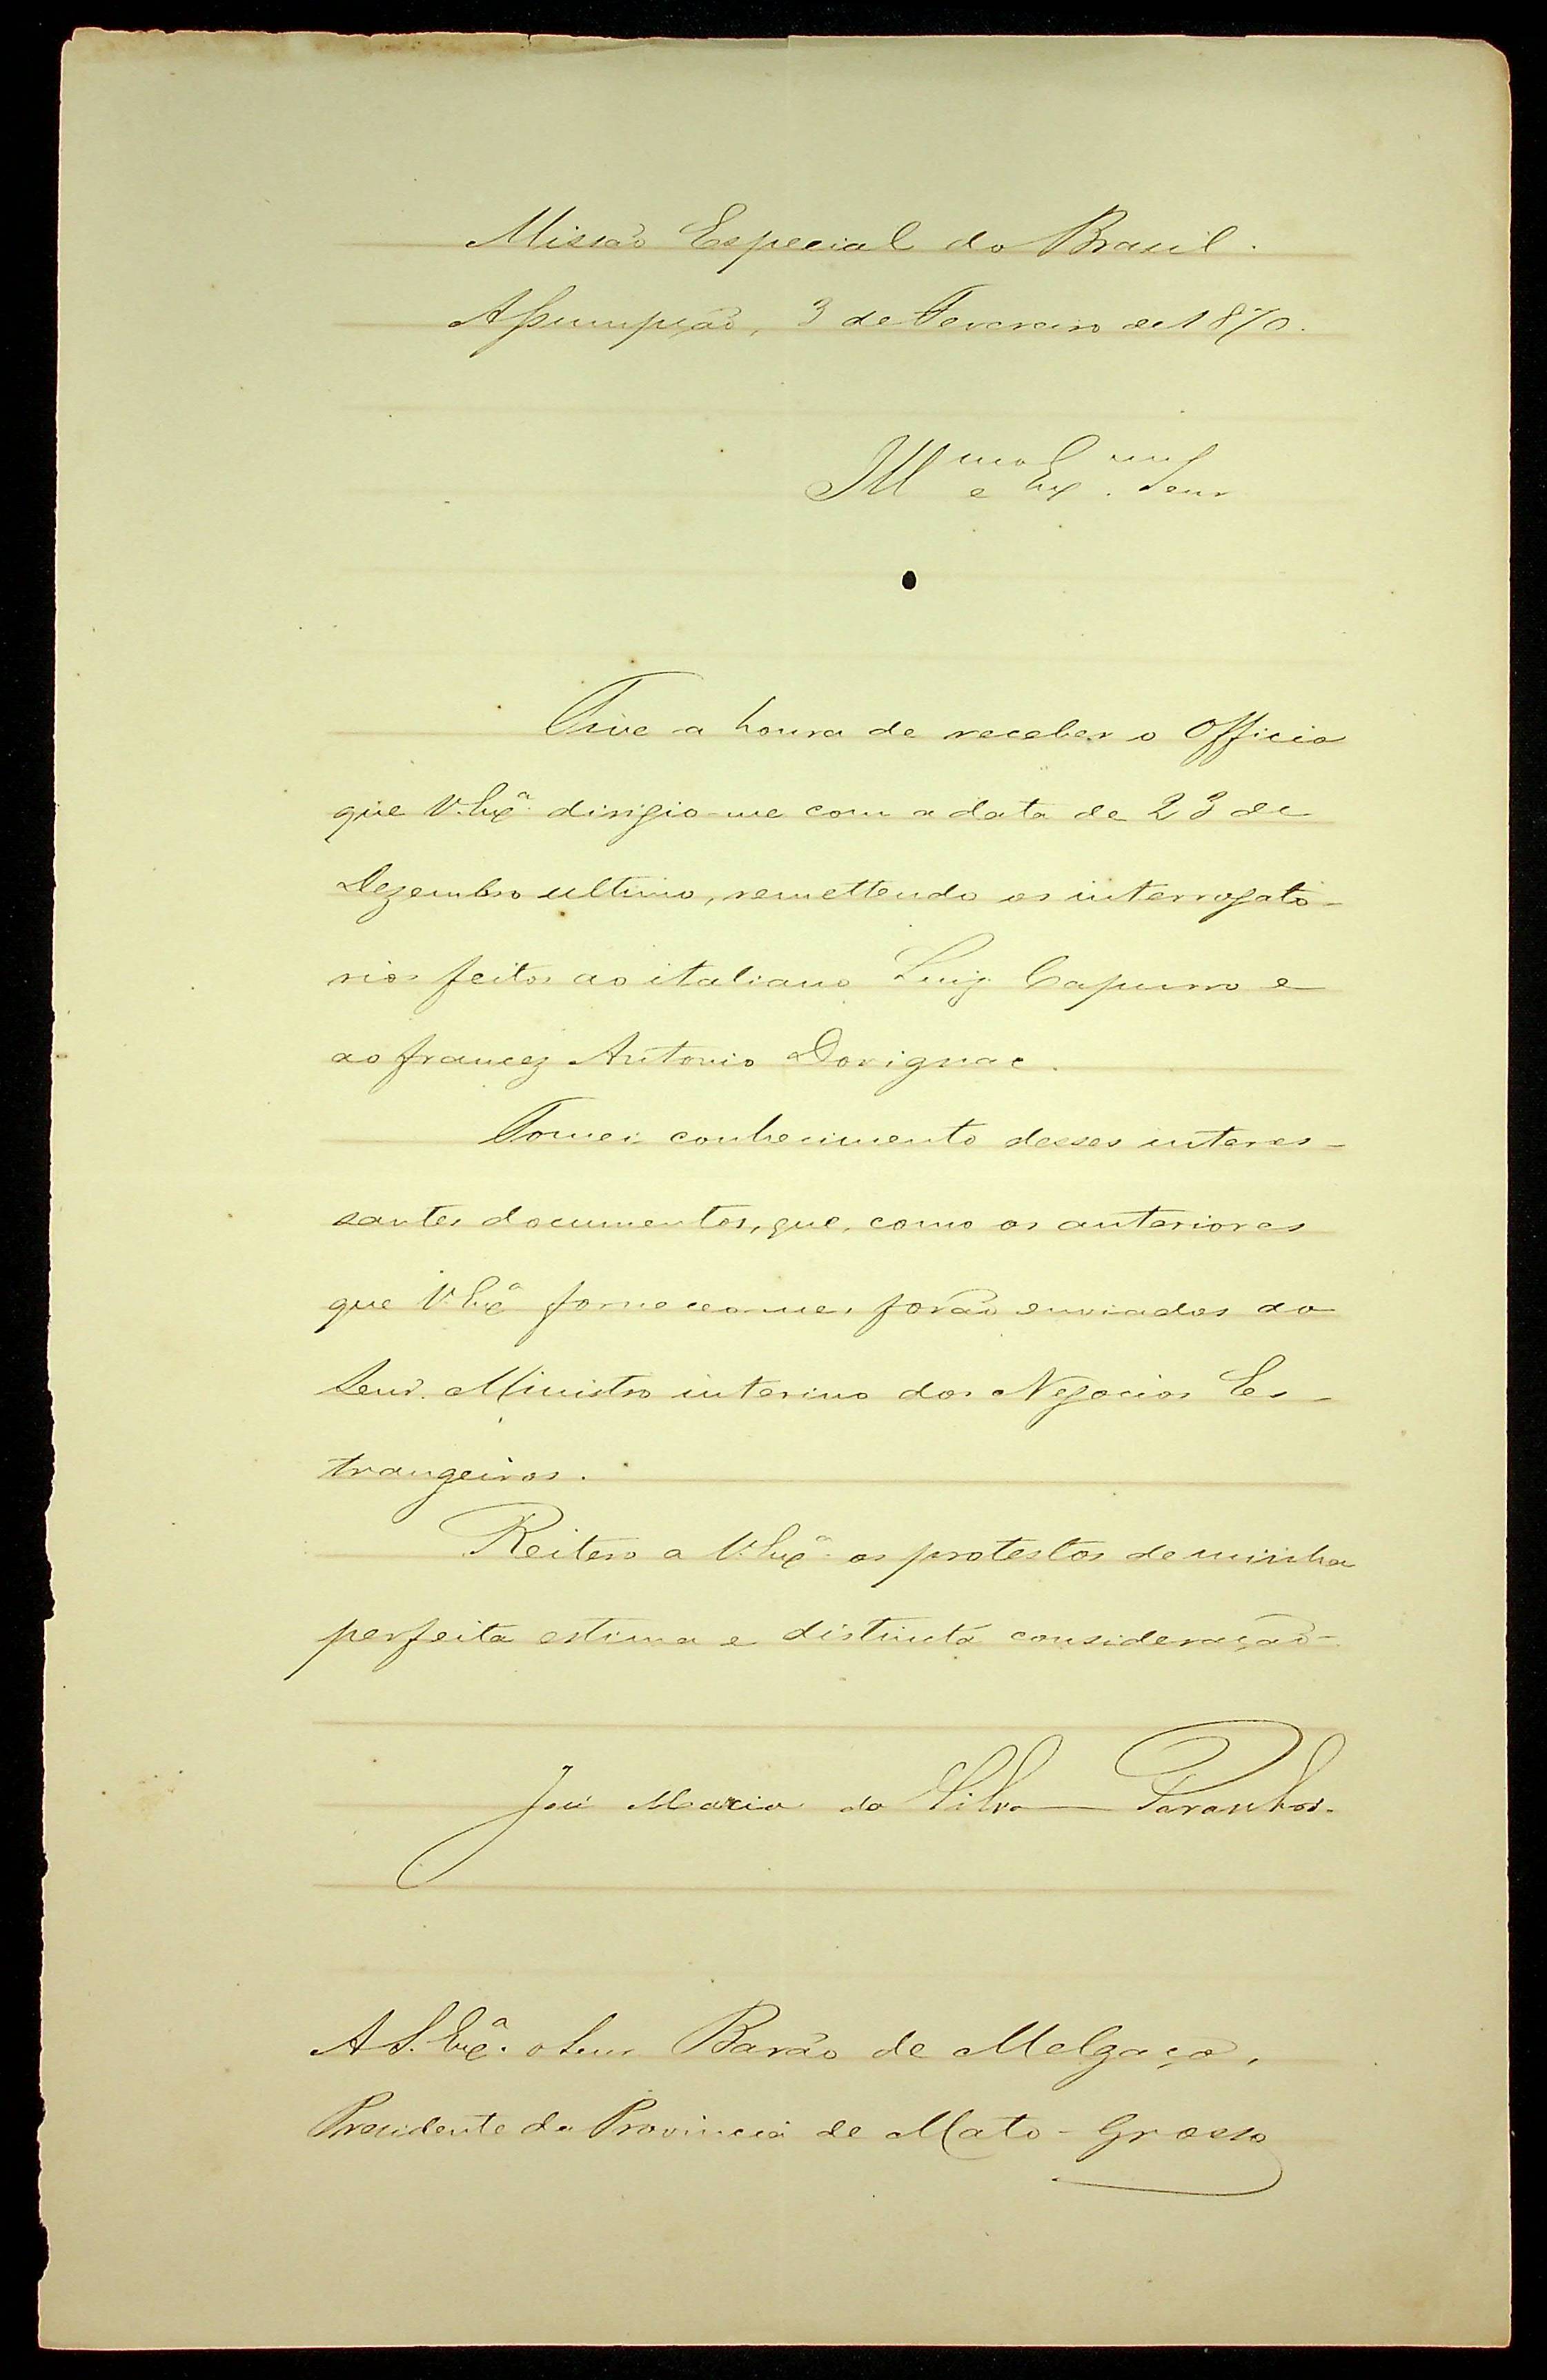 Missão Especial do Brasil.
Assumpção, 3 de Fevereiro de 1870.
Illmo e Exmo. Senr
Tive a honra de receber o Officio
que V. Exª. dirigio-me com a data de 23 de
Dezembro ultimo, remettendo os interrogato-
rios feitos ao italiano Luiz Capurro e
ao francez Antonio Dorignac.
Tomei conhecimento desses interes-
santes documentos, que, como os anteriores
que V. Exª forneceo-me, forão enviados ao
Senr. Ministro interino dos Negocios Es-
trangeiros.
Reitero a V. Exª. os protestos de minha
perfeita estima e distincta consideração.
José Maria da Silva Paranhos.
A S. Exª. o Senr Barão de Melgaço,
Presidente da Provincia de Mato-Grosso